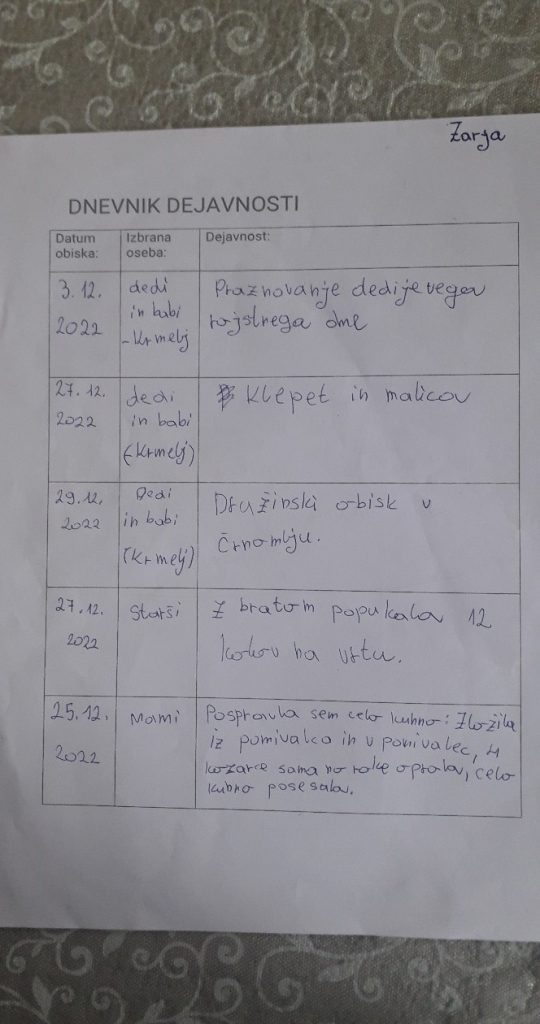 Zarja
DNEVNIK DEJAVNOSTI
Datum obiska:
Izbrana oseba:
Dejavnost:
3. 12.
2022
dedi
in babi
-Krmelj
Praznovanje dedijevega
rojstnega dne
27. 12.
2022
dedi
in babi
(Krmelj)
Klepet in malica
29.12.
2022
Dedi
in babi
(Krmelj)
Družinski obisk v
Črnomlju.
27.12.
2022
Starši
Z bratom popukala 12
kolov na vrtu.
25.12.
2022
Mami
Pospravla sem celo kuhno: Zložila
iz pomivalca in v pomivalec, 4
kozarce sama na roke oprala, celo
kuhno posesala.